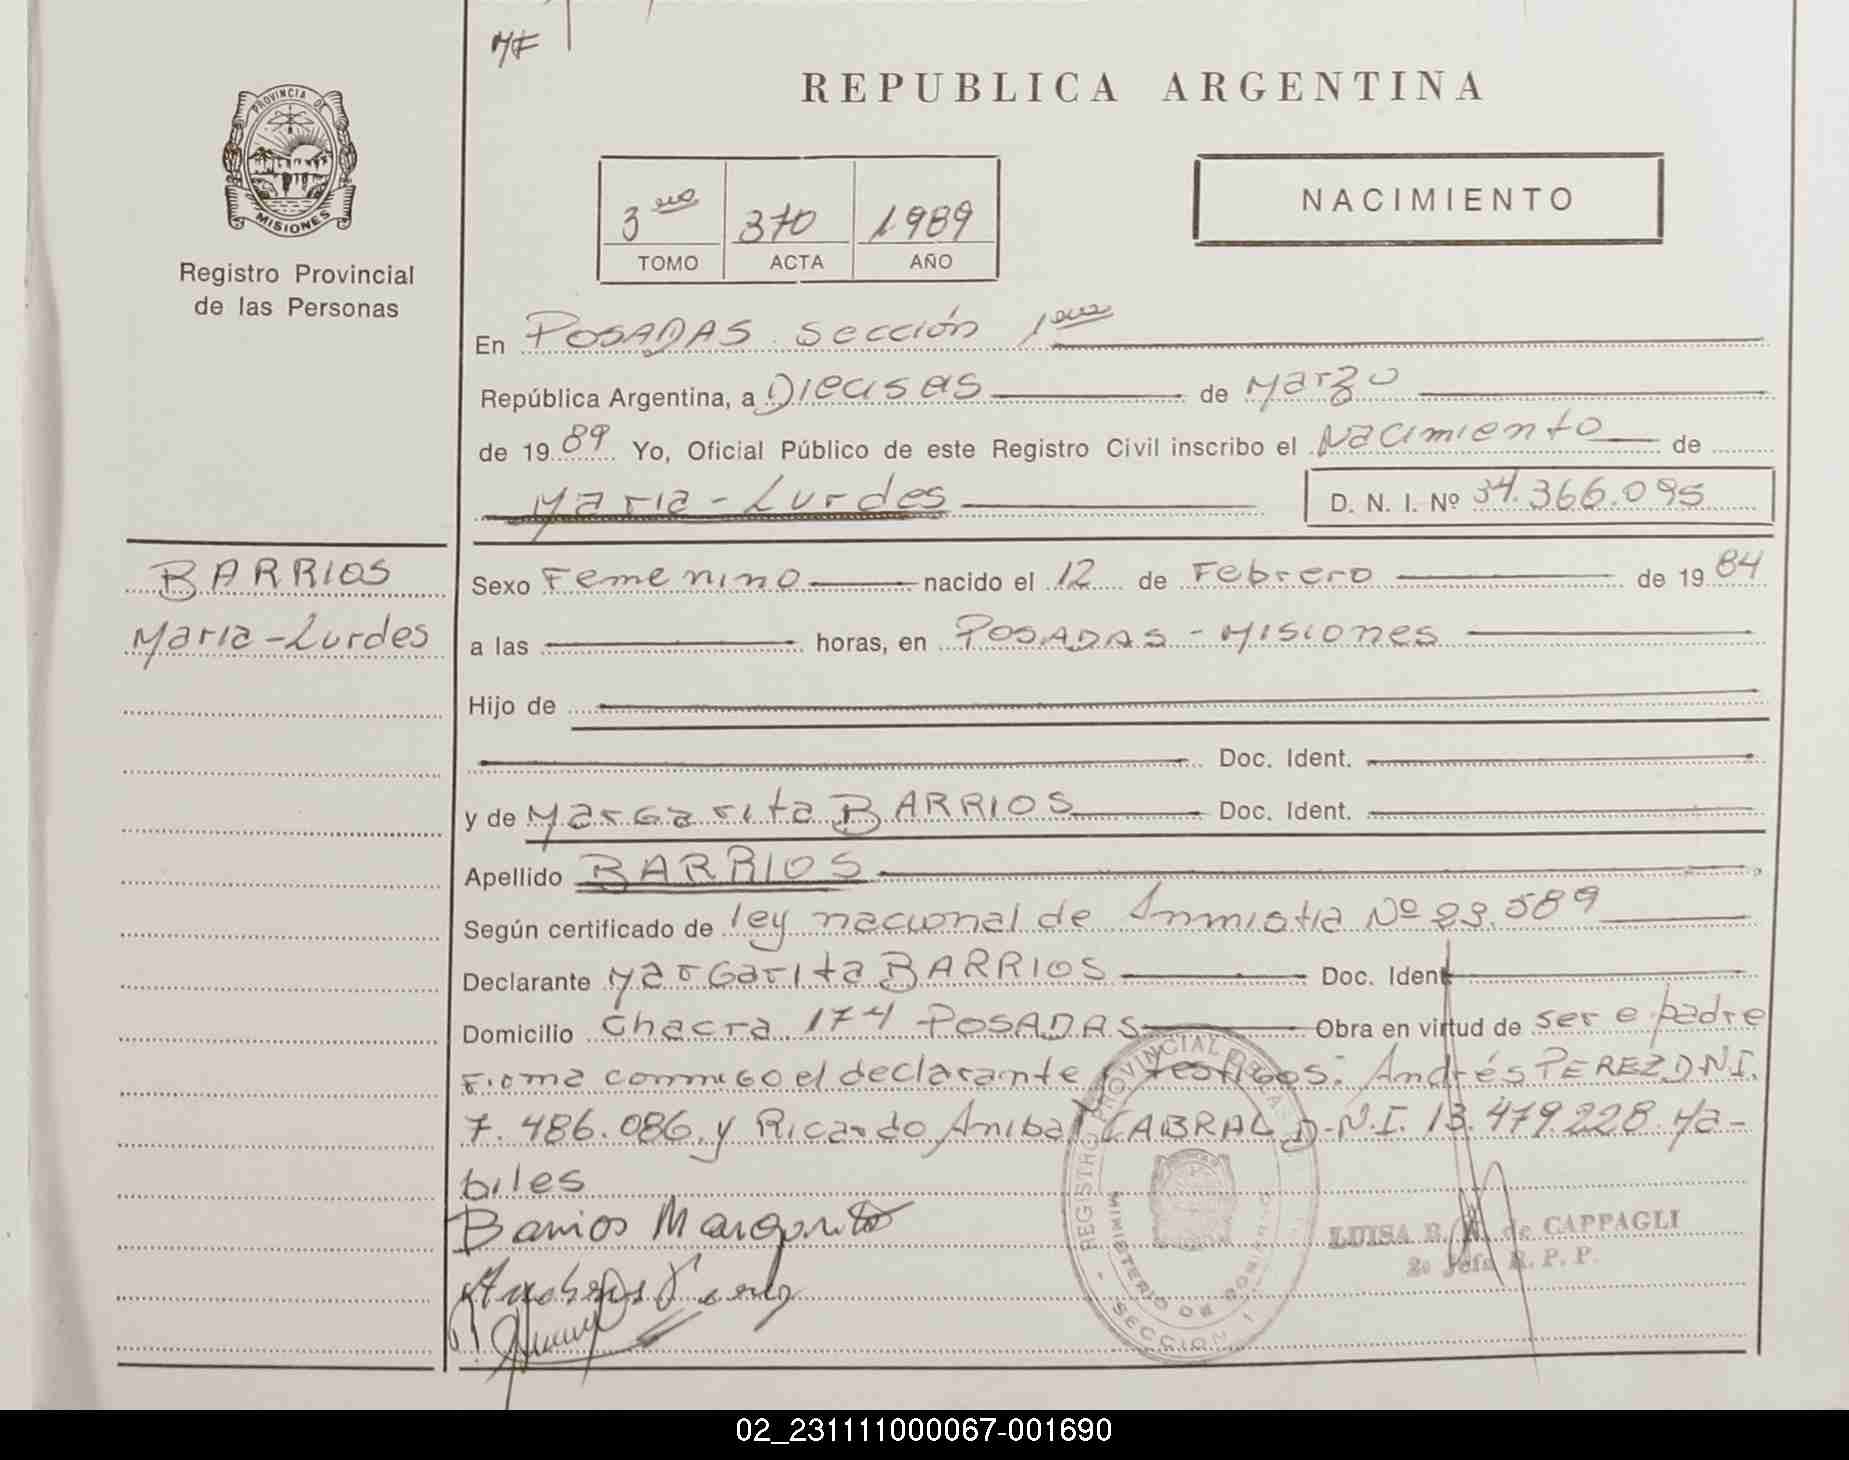 MF
PROVINCIA DE
MISIONES
Registro Provincial
de las Personas
REPUBLICA ARGENTINA
3 370 1989
TOMO ACTA AÑO
NACIMIENTO
En POSADAS Sección 1era
República Argentina, a Dieciseis de Marzo
de 1989 Yo, Oficial Público de este Registro Civil inscribo el Nacimiento de
Maria-Lurdes D. N. I. Nº 34.366.095
BARRIOS
Maria-Lurdes
Sexo Femenino nacido el 12 de Febrero de 1984
a las horas, en POSADAS - Misiones
Hijo de
Doc. Ident.
y de Margarita BARRIOS Doc. Ident.
Apellido BARRIOS
Según certificado de ley nacional de Anmistia Nº 23.589
Declarante Margarita BARRIOS Doc. Ident
Domicilio Chacra 174 POSADAS Obra en virtud de ser e padre
Firma conmigo el declarante y testigos: Andrés PEREZ DNI.
7.486.086. y Ricardo Anibal CABRAL D.N.I. 13.479.228. Ha-
biles
Barrios Margarita
REGISTRO PROVINCIAL DE LAS
MINISTERIO DE GOBIERNO
SECCION 1
LUISA B. de CAPPAGLI
2º Jefe R. P. P.
02_231111000067-001690